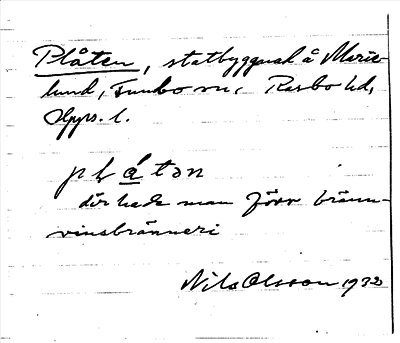 Plåten, statbyggnad å Marie-
lund, Funbo sn, Rasbo hd,
Upps. l.
plåtən
där hade man förr bränn-
vinsbränneri
Nils Olsson 1932